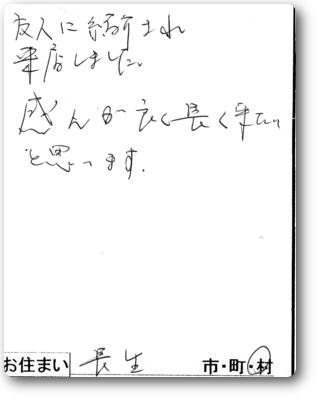 友人に紹介され
来店しました。
感んが良く長く来たい
と思ってます.
お住まい 長生 市・町・村